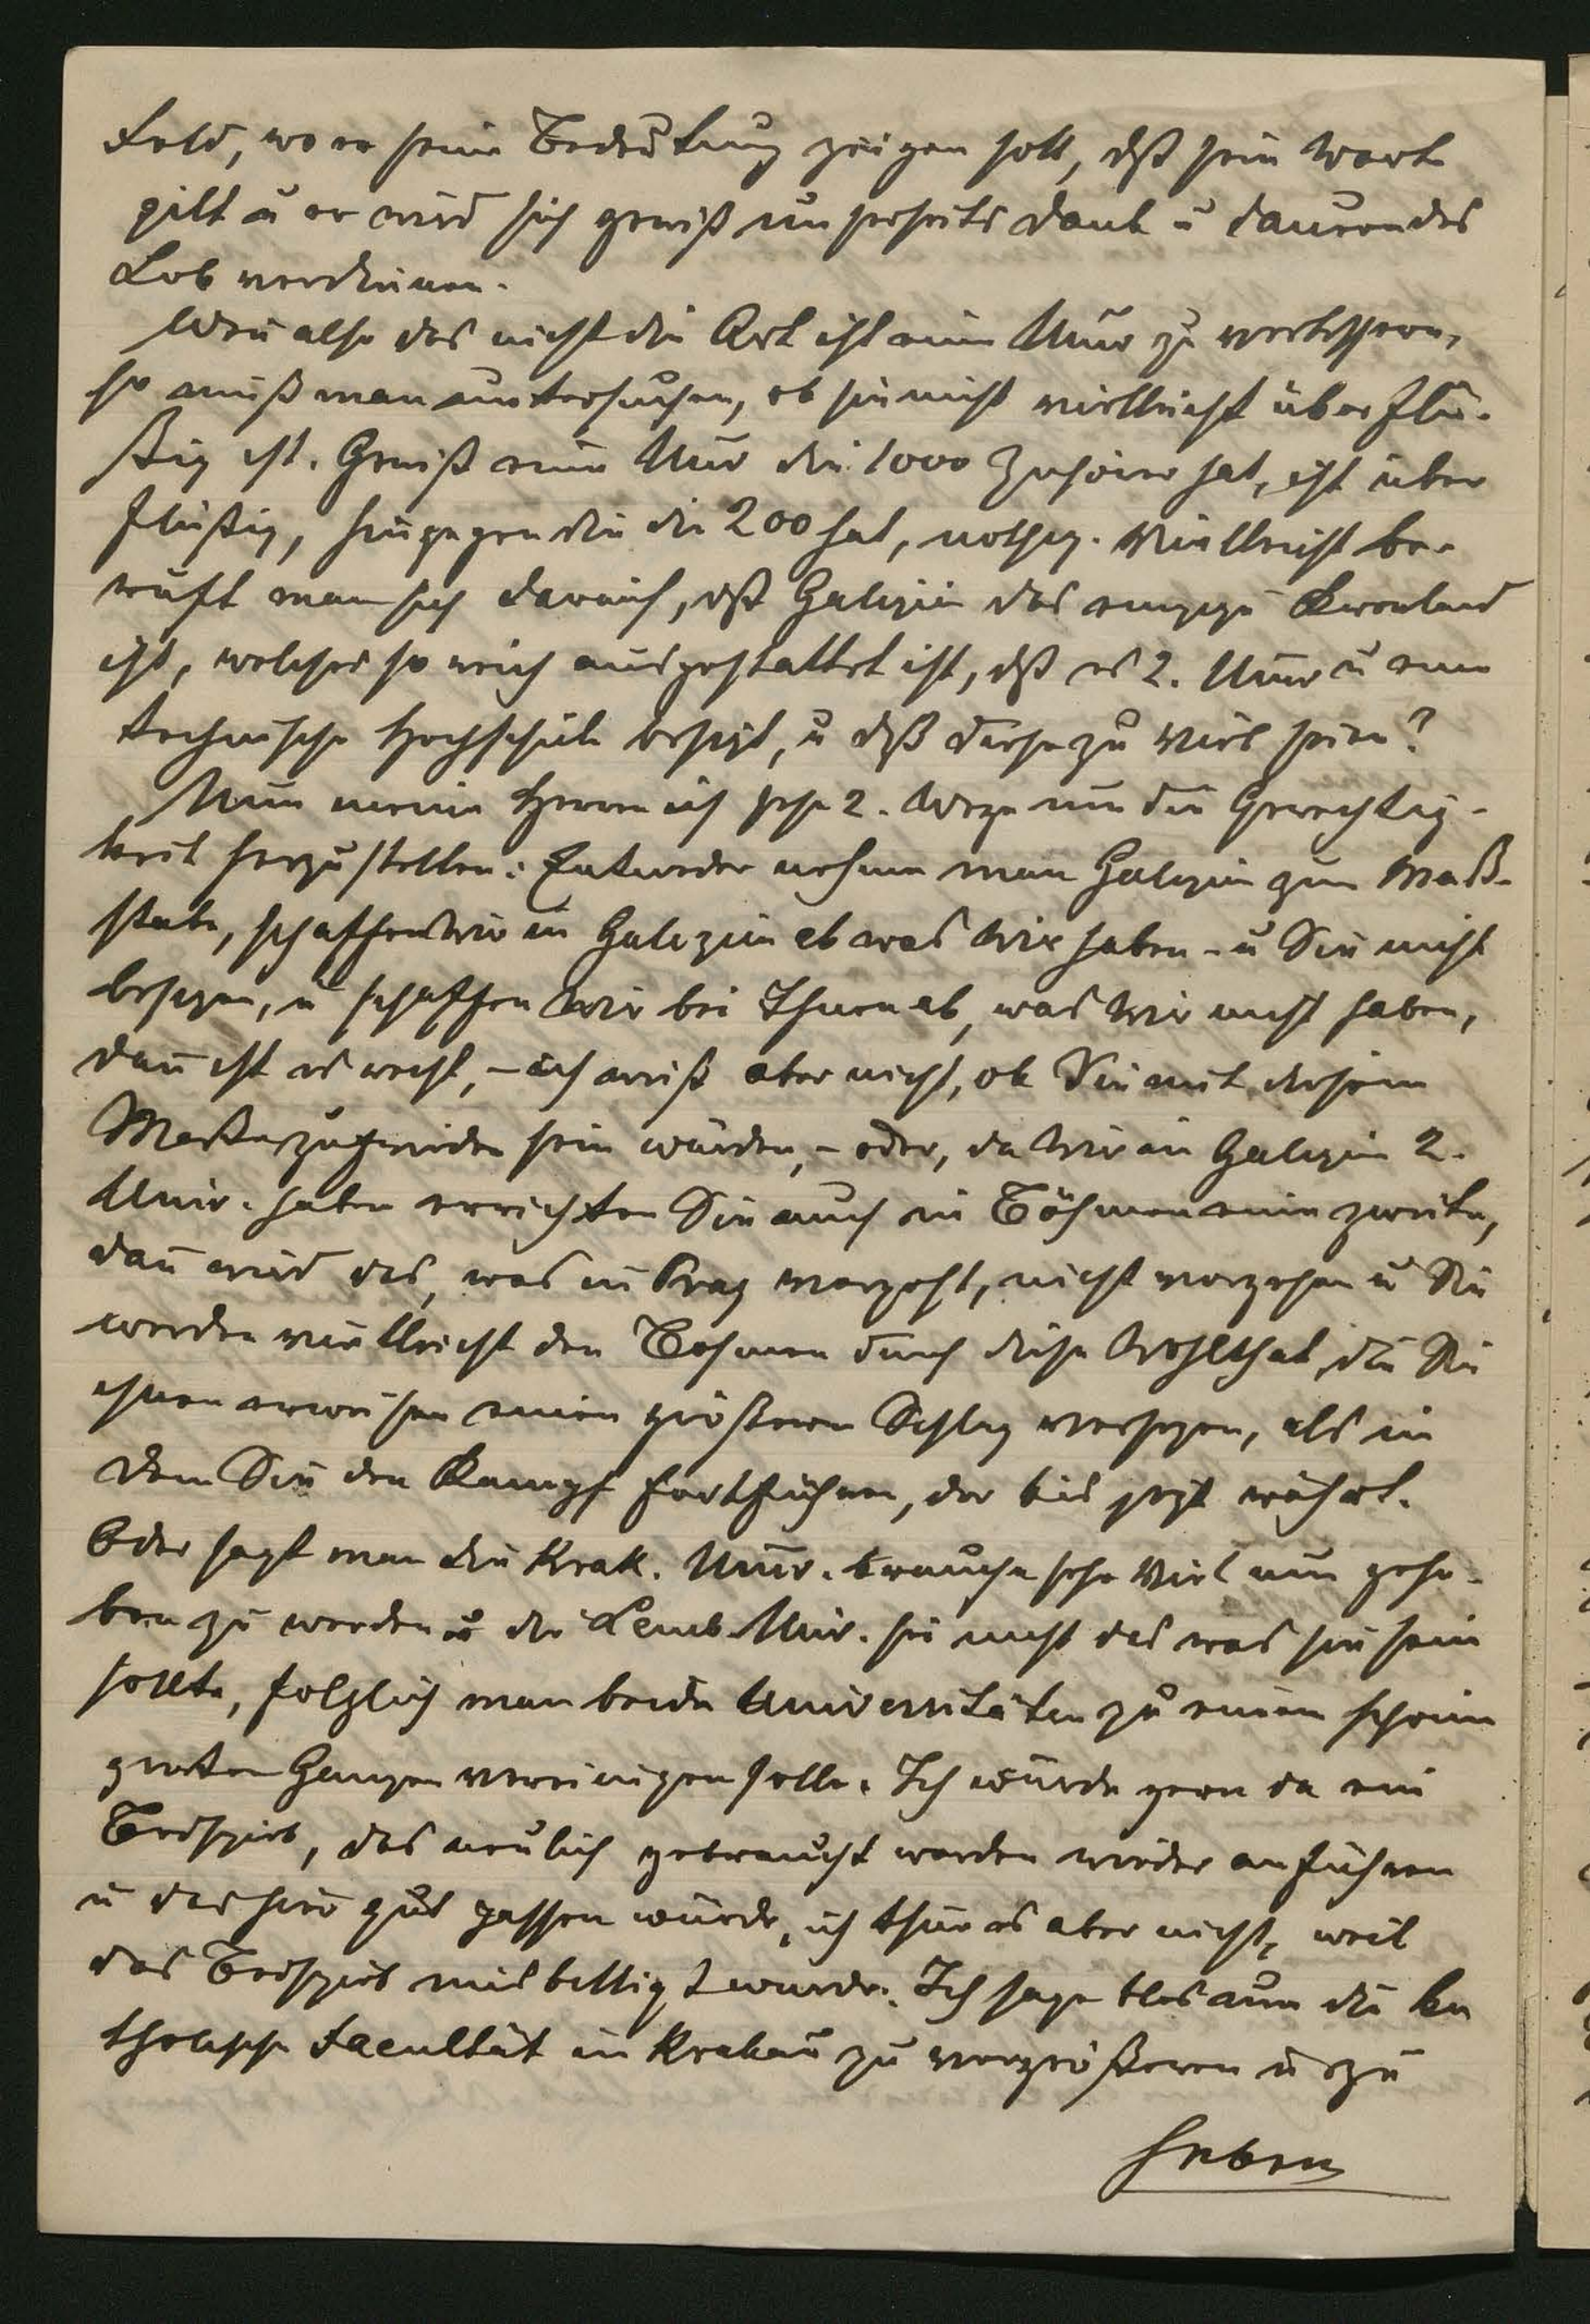 Feld, wo er seine Bedeutung zeigen soll, dß sein Wort
gilt u er wird sich gewiß unserseits Dank u dauerndes
Lob verdienen.
Wen also das nicht die Art ist eine Univ zu verbessern,
so muß man untersuchen, ob sie nicht vielleicht überflü-
ßig ist. Gewiß eine Univ die 1000 Zuhörer hat, ist über
flüßig, hingegen die die 200 hat, nothig. Vielleicht be-
ruft man sich darauf, dß Galizien das einzige Kronland
ist, welches so reich ausgestattet ist, dß es 2. Univ u eine
technische Hochschule besizt, u dß diese zu Viel seien?
Nun meine Herren ich sehe 2. Wege um die Gerechtig-
keit herzustellen: Entweder nehme man Galizien zum Maß-
stabe, schaffen wir in Galizien ab was Wir haben - u Sie nicht
besizen, u schaffen Wir bei Ihnen ab, was Wir nicht haben,
dan ist es recht, - ich weiß aber nicht, ob Sie mit diesem
Maße zufrieden sein würden, - oder, da Wir in Galizien 2.
Univ. haben errichten Sie auch in Böhmen eine zweite,
dan wird das, was in Prag vorgeht, nicht vorgehen u Sie
werden vielleicht den Bohmen durch diese Wohlthat die Sie
ihnen erweisen einen größeren Schlag versezen, als in
dem Sie den Kampf fortführen, der bis jezt währt.
Oder sagt man die Krak. Univ. brauche sehr Viel um geho-
ben zu werden u die Lemb. Univ. sei nicht das was sie sein
sollte, folglich man beide Universitäten zu einem schönen
guten Ganzen vereinigen solle. Ich würde gern da ein
Beispiel, das neulich gebraucht worden wieder anführen
u das hier gut passen würde, ich thue es aber nicht, weil
das Beispiel misbilligt wurde. Ich sage blos um die ka
tholische Facultät in Krakau zu vergrößeren u zu
heben